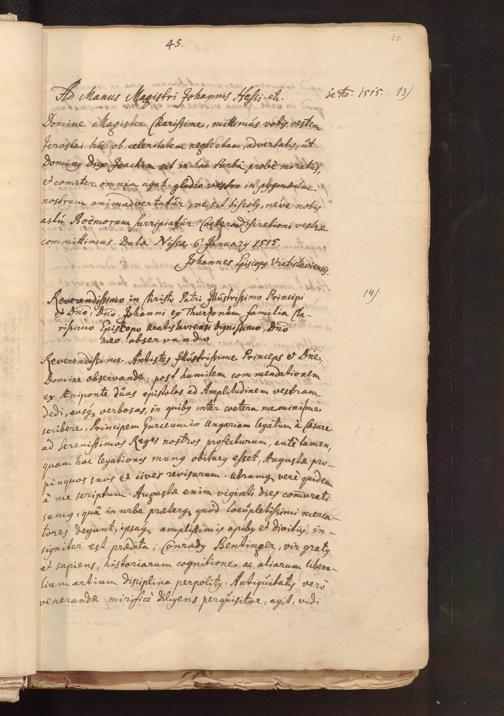 45.
30
Ad Manus Magistri Johannis Hessi etc.
de Ao. 1515. 13/
Domine Magister Charissime, mittimus vobis vestem
hic ob celeritatem neglectam, advertatis, ut
Dominus Dux Joachim sit in hac turba probè moratus,
et comiter omnia agat: gladio vestro in pygmaeum
nostrum animadvertatur, ne sit neve nobis
astu Boëmorum surripiatur Caetera discretioni vestrae
committimus. Data Nissae 6. January 1515.
Johannes Episcopus Vratislaviensis.
14/
Reverendissimo in Christo Patri Illustrissimo Principi
et Dno, Dno. Johanni ex Thurzonum familia Cla-
rissimo Episcopo Vratislaviensi dignissimo, Dno
meo observando
Reverendissime Antistes Illustrissime Princeps et Dne,
Domine observande; post humilem commendationem
ex Aeniponte duas epistolas ad Amplitudinem vestram
dedi, easq verbosas, in quibus inter caetera memini me
scribere, Principem Gurcensem in Ungariam legatum à Caesare
ad Serenissimos Reges nostros profecturum, ante tamen,
quam hoc legationis munus obiturus esset, Augustae pro-
pinquos suos et cives revisurum. Utrumq verè quidem
à me scriptum Augustae enim viginti dies commorati
sumus, quâ in urbe praeterq quod locupletissimi merca-
tores degunt, ipsaq amplissimis opibus et divitijs in-
signiter est praedita; Conradus Bentinger, vir gratus
et sapiens, historiarum cognitione, ac aliarum libera-
lium artium disciplina perpolitus Antiquitatis verò
venerandae mirificè diligens perquisitor, agit, vidi